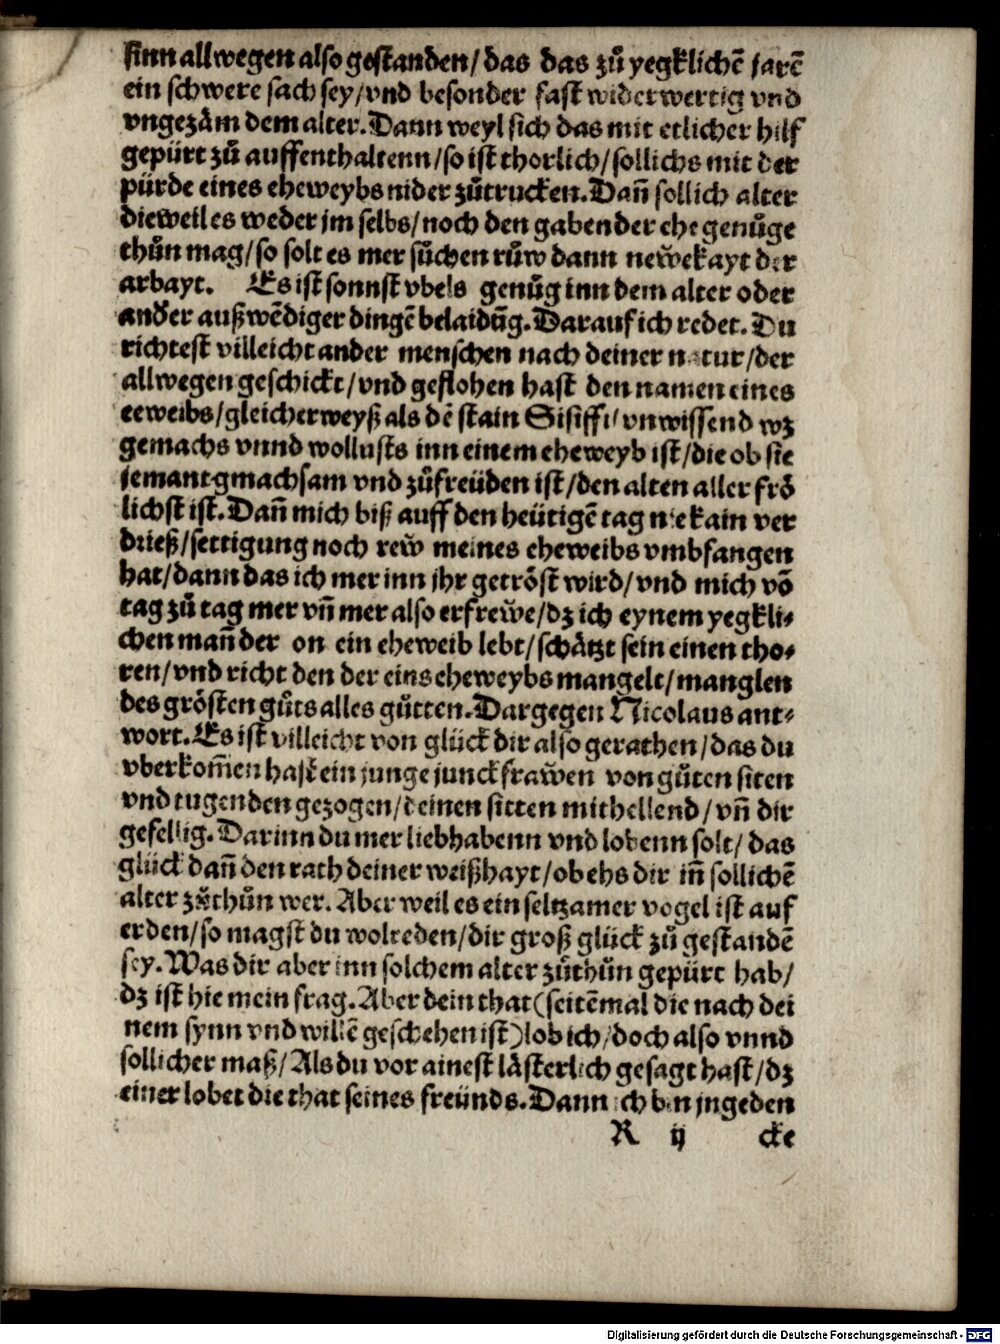 sinn allwegen also gestanden/ das das zů yegklichē jarē
ein schwere sach sey/ vnd besonder fast widerwertig vnd
vngezäm dem alter. Dann weyl sich das mit etlicher hilf
gepürt zů auffenthaltenn/ so ist thorlich/ sollichs mit der
pürde eines eheweybs nider zůtrucken. Dan̄ sollich alter
dieweil es weder jm selbs/ noch den gaben der ehe genůge
thůn mag/ so solt es mer sůchen růw dann new̌ekayt der
arbayt. Es ist sonnst vbels genůg inn dem alter oder
and'er außwēdiger dingē belaidūg. Darauf ich redet. Du
richtest villeicht ander menschen nach deiner natur/ der
allwegen geschickt/ vnd geflohen hast den namen eines
eeweibs/ gleicherweyß als dē stain Sisiffi/ vnwissend wz
gemachs vnnd wollusts inn einem eheweyb ist/ die ob sie
jemant gmachsam vnd zůfreüden ist/ den alten aller frö
lichst ist. Dan̄ mich biß auff den heütigē tag nie kain ver
drieß/ settigung noch rew̌ meines eheweibs vmbfangen
hat/ dann das ich mer inn jhr getröst wird/ vnd mich vō
tag zů tag mer vn̄ mer also erfrew̌e/ dz ich eynem yegkli-
chen man̄ der on ein eheweib lebt/ schätzt sein einen tho-
ren/ vnd richt den der eins eheweybs mangelt/ manglen
des grösten gůts alles gůtten. Dargegen Nicolaus ant-
wort. Es ist villeicht von glück dir also gerathen/ das du
vberkom̄en hast ein junge junckfraw̌en von gůten siten
vnd tugenden gezogen/ deinen sitten mithellend/ vn̄ dir
gesellig. Darinn du mer liebhabenn vnd lobenn solt/ das
glück dan̄ den rath deiner weißhayt/ ob ehs dir in̄ sollichē
alter zůthůn wer. Aber weil es ein seltzamer vogel ist auf
erden/ so magst du wol reden/ dir groß glück zů gestandē
sey. Was dir aber inn solchem alter zůthůn gepürt hab/
dz ist hie mein frag. Aber dein that (seitēmal die nach dei
nem synn vnd willē geschehen ist) lob ich/ doch also vnnd
sollicher maß/ Als du vor ainest lästerlich gesagt hast/ dz
einer lobet die that seines freünds. Dann ich bin jngeden
R ij cke
Digitalisierung gefördert durch die Deutsche Forschungsgemeinschaft - DFG